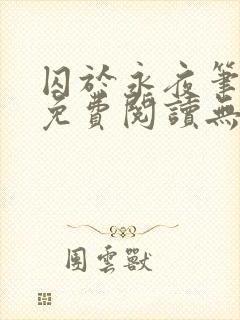 囚於永夜筆
免費閱讀無
團雲獸